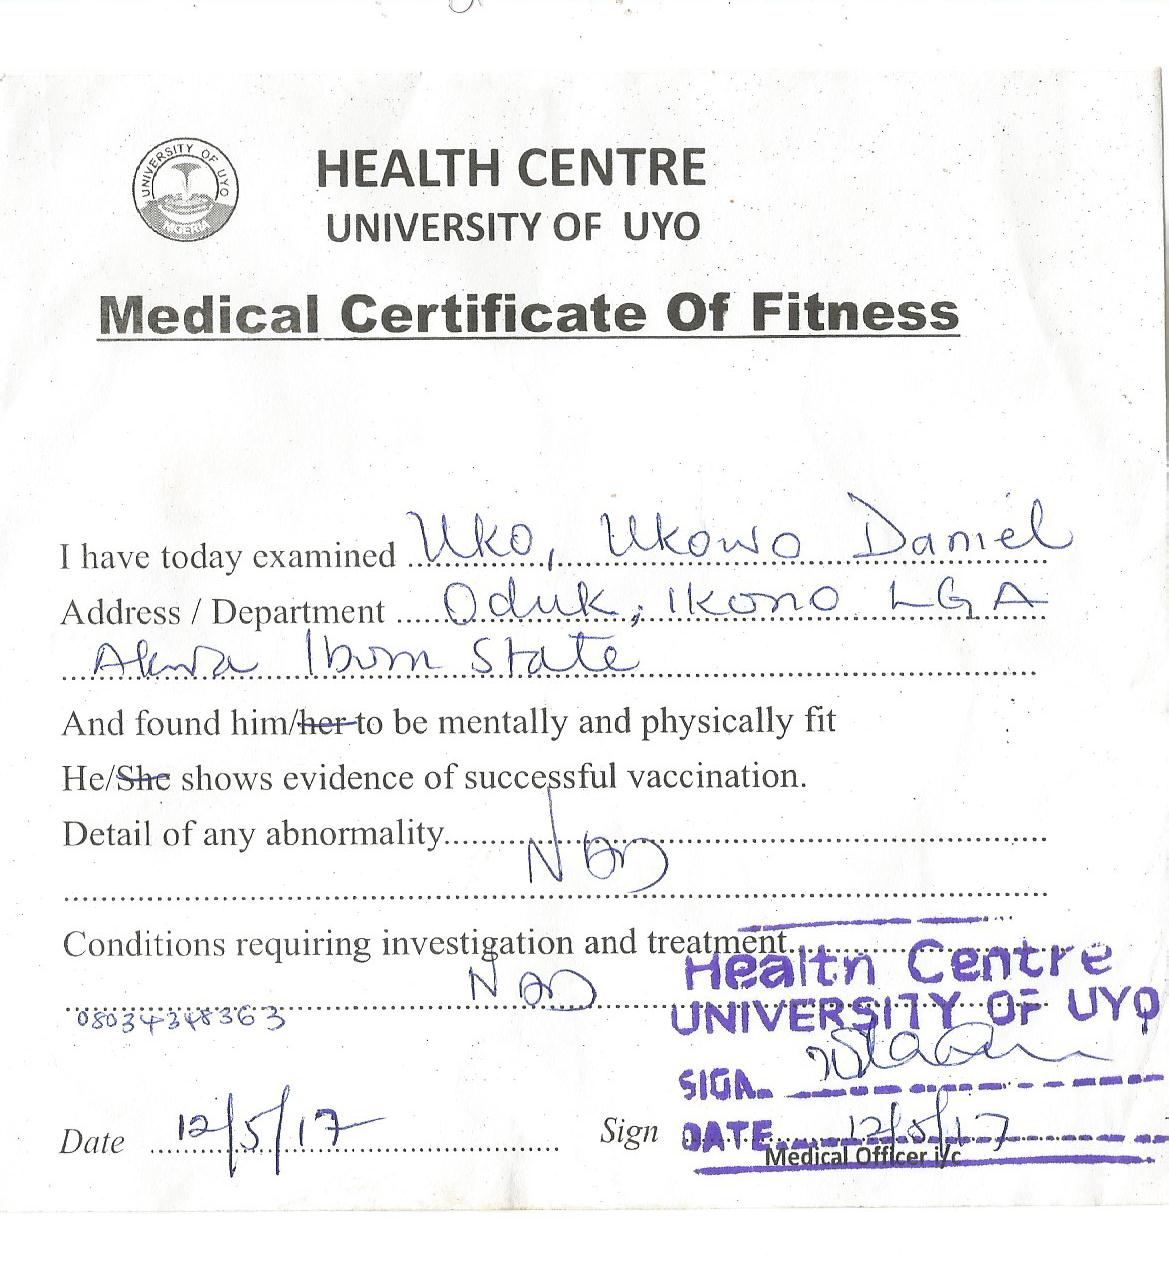 UNIVERSITY OF UYO
NIGERIA
HEALTH CENTRE
UNIVERSITY OF UYO
Medical Certificate Of Fitness
I have today examined Uko, Ukowo Daniel
Address / Department Oduk, Ikono LGA
Akwa Ibom State
And found him/her to be mentally and physically fit
He/She shows evidence of successful vaccination.
Detail of any abnormality
NAD
Conditions requiring investigation and treatment
NAD
Health Centre
UNIVERSITY OF UYO
08034348363
SIGN.
Date 12/5/17
Sign
DATE 12/5/17
Medical Officer i/c